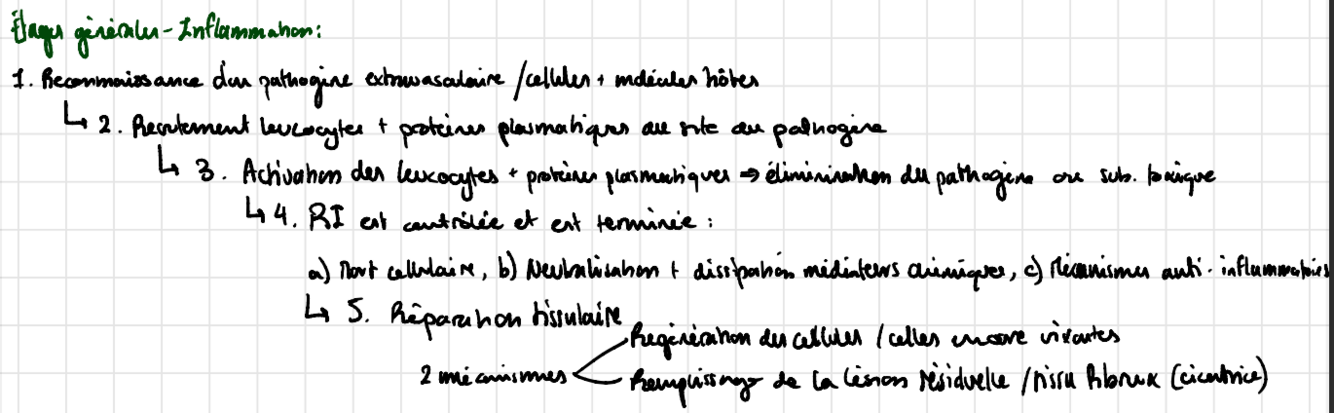 Étages générales - Inflammation:
1. Reconnaissance d'un pathogène extravasculaire / cellules + molécules hôtes
↳ 2. Recrutement leucocytes + protéines plasmatiques au site du pathogène
↳ 3. Activation des leucocytes + protéines plasmatiques ⇒ élimination du pathogène ou sub. toxique
↳ 4. RI est contrôlée et est terminée :
a) Mort cellulaire, b) Neutralisation + dissipation médiateurs chimiques, c) Mécanismes anti-inflammatoires
↳ 5. Réparation tissulaire
Regénération des cellules / celles encore vivantes
2 mécanismes
Remplissage de la lésion résiduelle / tissu fibreux (cicatrice)